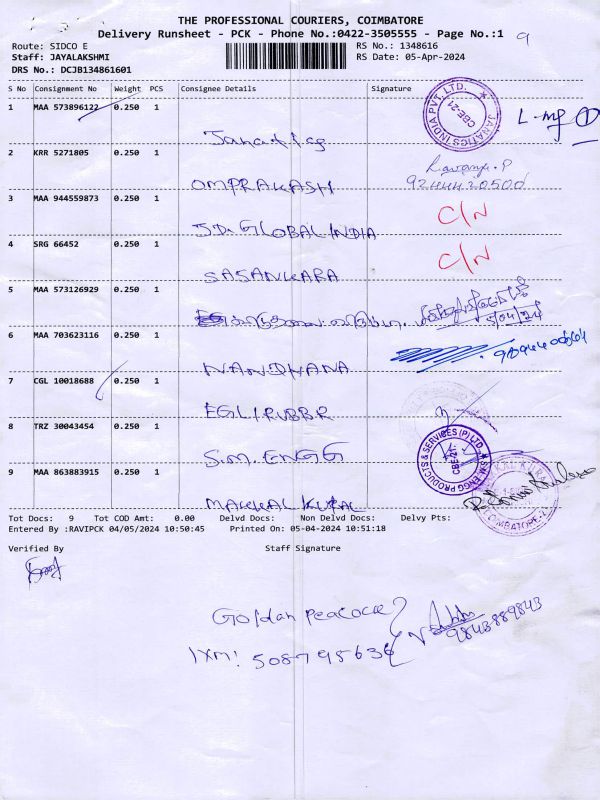 THE PROFESSIONAL COURIERS, COIMBATORE
Delivery Runsheet - PCK - Phone No.:0422-3505555 - Page No.:1
9
Route: SIDCO E
RS No.: 1348616
Staff: JAYALAKSHMI
RS Date: 05-Apr-2024
DRS No.: DCJB134861601
S No Consignment No Weight PCS Consignee Details Signature
1 MAA 573896122 0.250 1
JANATICS INDIA PVT. LTD. CBE-21
2 KRR 5271805 0.250 1 OMPRAKASH
3 MAA 944559873 0.250 1 J.D. GLOBAL INDIA C/N
4 SRG 66452 0.250 1 SASANKARA C/N
5 MAA 573126929 0.250 1
5/04/24
6 MAA 703623116 0.250 1 NANDHANA
7 CGL 10018688 0.250 1 EGLI RUBBR
8 TRZ 30043454 0.250 1 S.M. ENGG
S.M. ENGG PRODUCTS & SERVICES (P) LTD. CBE-21
9 MAA 863883915 0.250 1 MAKKAL KURAL
Tot Docs: 9 Tot COD Amt: 0.00 Delvd Docs: Non Delvd Docs: Delvy Pts:
Entered By :RAVIPCK 04/05/2024 10:50:45 Printed On: 05-04-2024 10:51:18
Verified By Staff Signature
Goldan Peacock
9843889843
IXM: 508795636